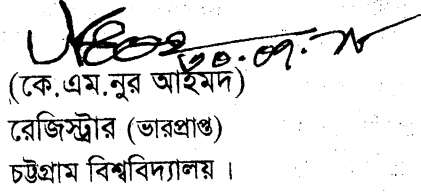 (কে.এম.নুর আহমদ)
রেজিস্ট্রার (ভারপ্রাপ্ত)
চট্টগ্রাম বিশ্ববিদ্যালয় ।